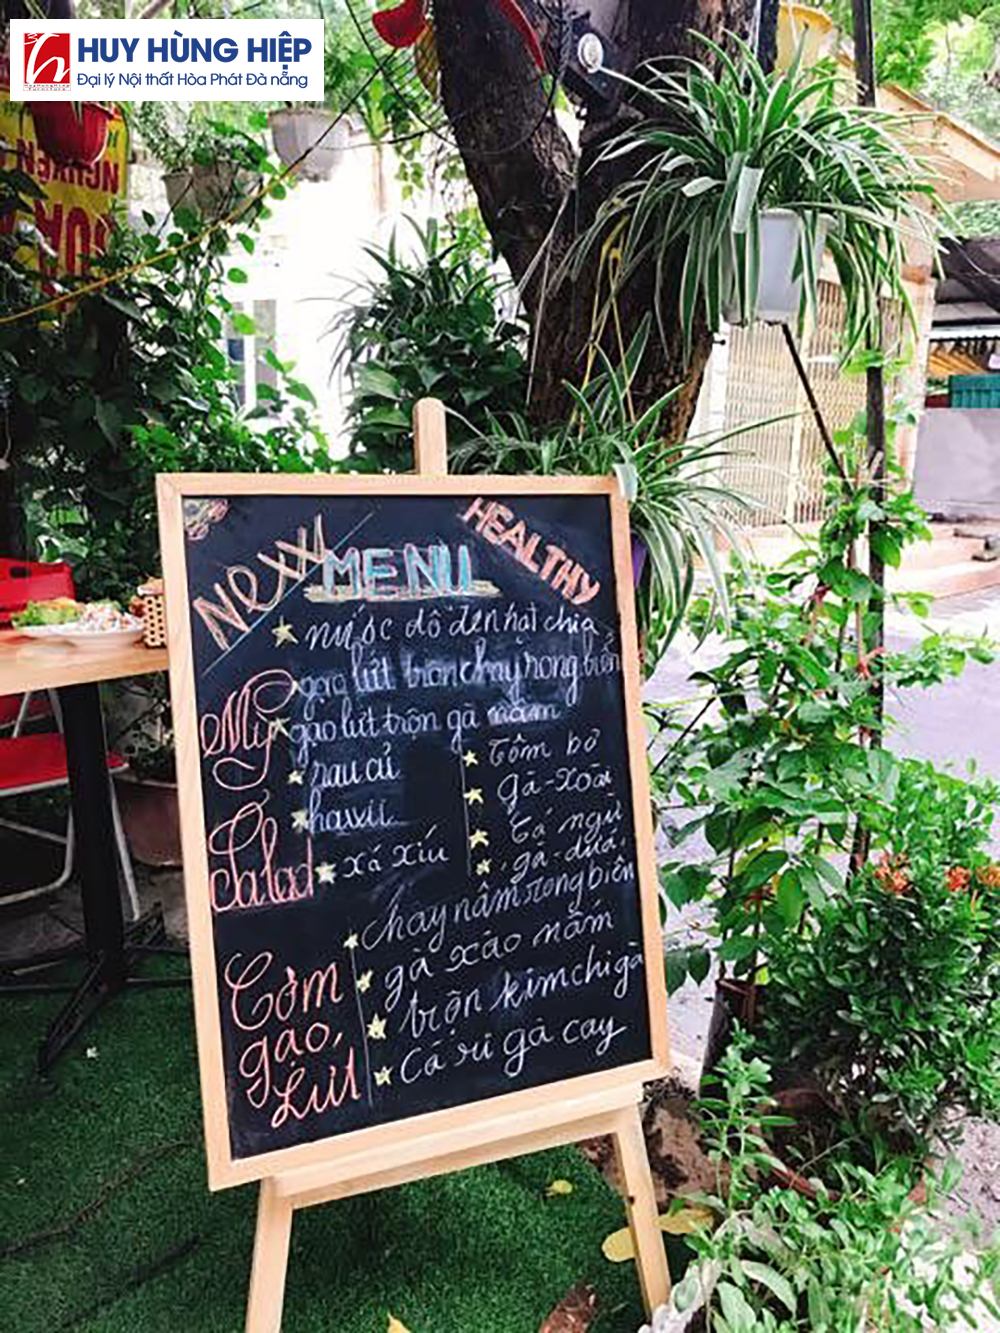 HUY HÙNG HIỆP
Đại lý Nội thất Hòa Phát Đà nẵng
New MENU HEALTHY
nước đỗ đen hạt chia
Mỳ
gạo lứt trộn chay rong biển
gạo lứt trộn gà nấm
Salad
rau củ
hawii
xá xíu
Tôm bơ
gà-xoài
Cá ngừ
gà-dứa
Cơm gạo Lứt
chay nấm rong biển
gà xào nấm
trộn kim chi gà
Cà ri gà cay